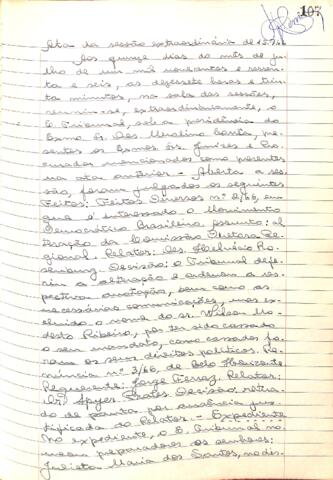 107
Ata da sessão extraordinária de 15.7.66
Aos quinze dias do mês de ju-
lho de um mil novecentos e sessen-
ta e seis, às dezessete horas e trin-
ta minutos, na sala das sessões,
reuniu-se, extraordinariamente, o
E. Tribunal, sob a presidência do
Exmo. Sr. Des. Corrêa, pre-
sentes os Exmos. Srs. Juízes e Pro-
curador mencionados como presentes
na ata anterior. - Aberta a ses-
são, foram julgados os seguintes
feitos: Feitos Diversos nº 2/66, em
que é interessado o Movimento
Democrático Brasileiro, assunto: al-
teração da Comissão Diretora Re-
gional. Relator: Des. Ro-
senburg. Decisão: o Tribunal defe-
riu a alteração e ordenou a res-
pectiva anotação, bem como as
necessárias comunicações, mas ex-
cluído o nome do sr. Wilson Mo-
desto Ribeiro, por ter sido cassado
o seu mandato, como cassados fo-
ram os seus direitos políticos. Re-
núncia nº 3/66, de Belo Horizonte.
Requerente: Jorge Ferraz. Relator:
Dr. Prates. Decisão: retira-
do de pauta por ausência jus-
tificada do Relator. - Expediente
No expediente, o E. Tribunal no-
meou preparadores os senhores:
Julieta Maria dos Santos, no dis-